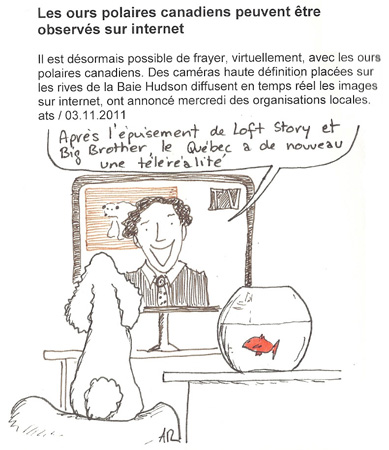 Les ours polaires canadiens peuvent être
observés sur internet
Il est désormais possible de frayer, virtuellement, avec les ours
polaires canadiens. Des caméras haute définition placées sur
les rives de la Baie Hudson diffusent en temps réel les images
sur internet, ont annoncé mercredi des organisations locales.
ats / 03.11.2011
Après l'épuisement de Loft Story et
Big Brother, le Québec a de nouveau
une téléréalité
TV
AR